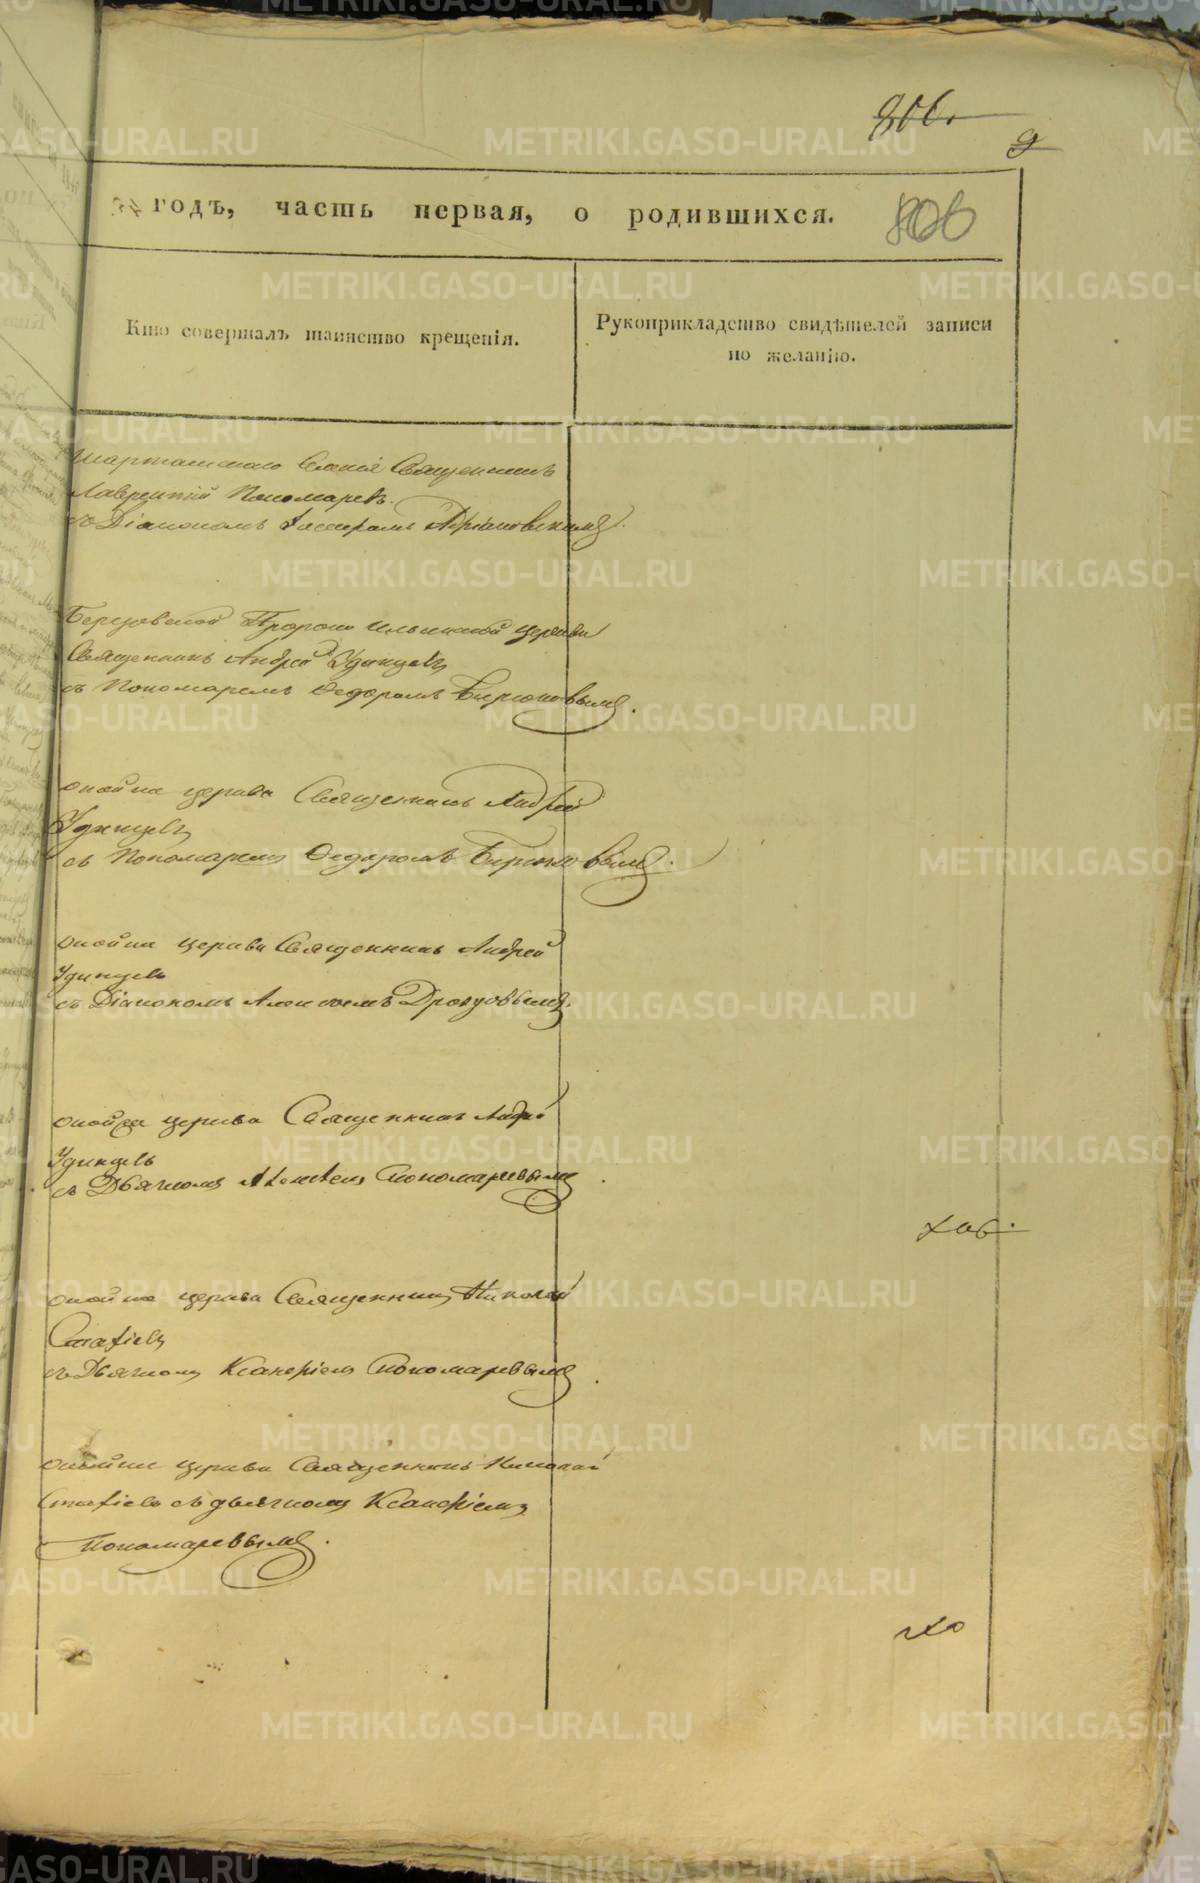 806.
9
34 годъ, часть первая, о родившихся.
806
Кто совершалъ таинство крещенія.
Рукоприкладство свидѣтелей записи
по желанію.
Шарташскаго Селенія Священникъ
Лаврентій Пономаревъ.
съ Діакономъ Адріановскимъ.
Березовской Пророко Ильинской церкви
Священникъ Андрей Удинцевъ
съ Пономаремъ Федоромъ Бирюковымъ.
оной же церкви Священникъ Андрей
Удинцевъ
съ Пономаремъ Федоромъ Бирюковымъ.
оной же церкви Священникъ Андрей
Удинцевъ
съ Діакономъ Алексѣемъ Дроздовымъ.
оной же церкви Священникъ Андрей
Удинцевъ
съ Дьячкомъ Пономаревымъ
оной же церкви Священникъ Николай
Статіевъ
съ Дьячкомъ Ксаноріемъ Пономаревымъ
оной же церкви Священникъ Николай
Статіевъ съ дьячкомъ Ксаноріемъ
Пономаревымъ.
METRIKI.GASO-URAL.RU